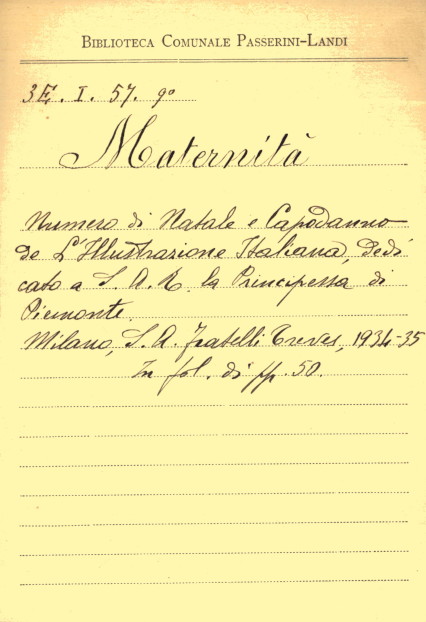 BIBLIOTECA COMUNALE PASSERINI-LANDI
3E. I. 57. 9º
Maternità
Numero di Natale e Capodanno
de L'Illustrazione Italiana, dedi
cato a S. A. R. la Principessa di
Piemonte.
Milano, S. A. Fratelli Treves, 1934-35
In fol. di pp. 50.